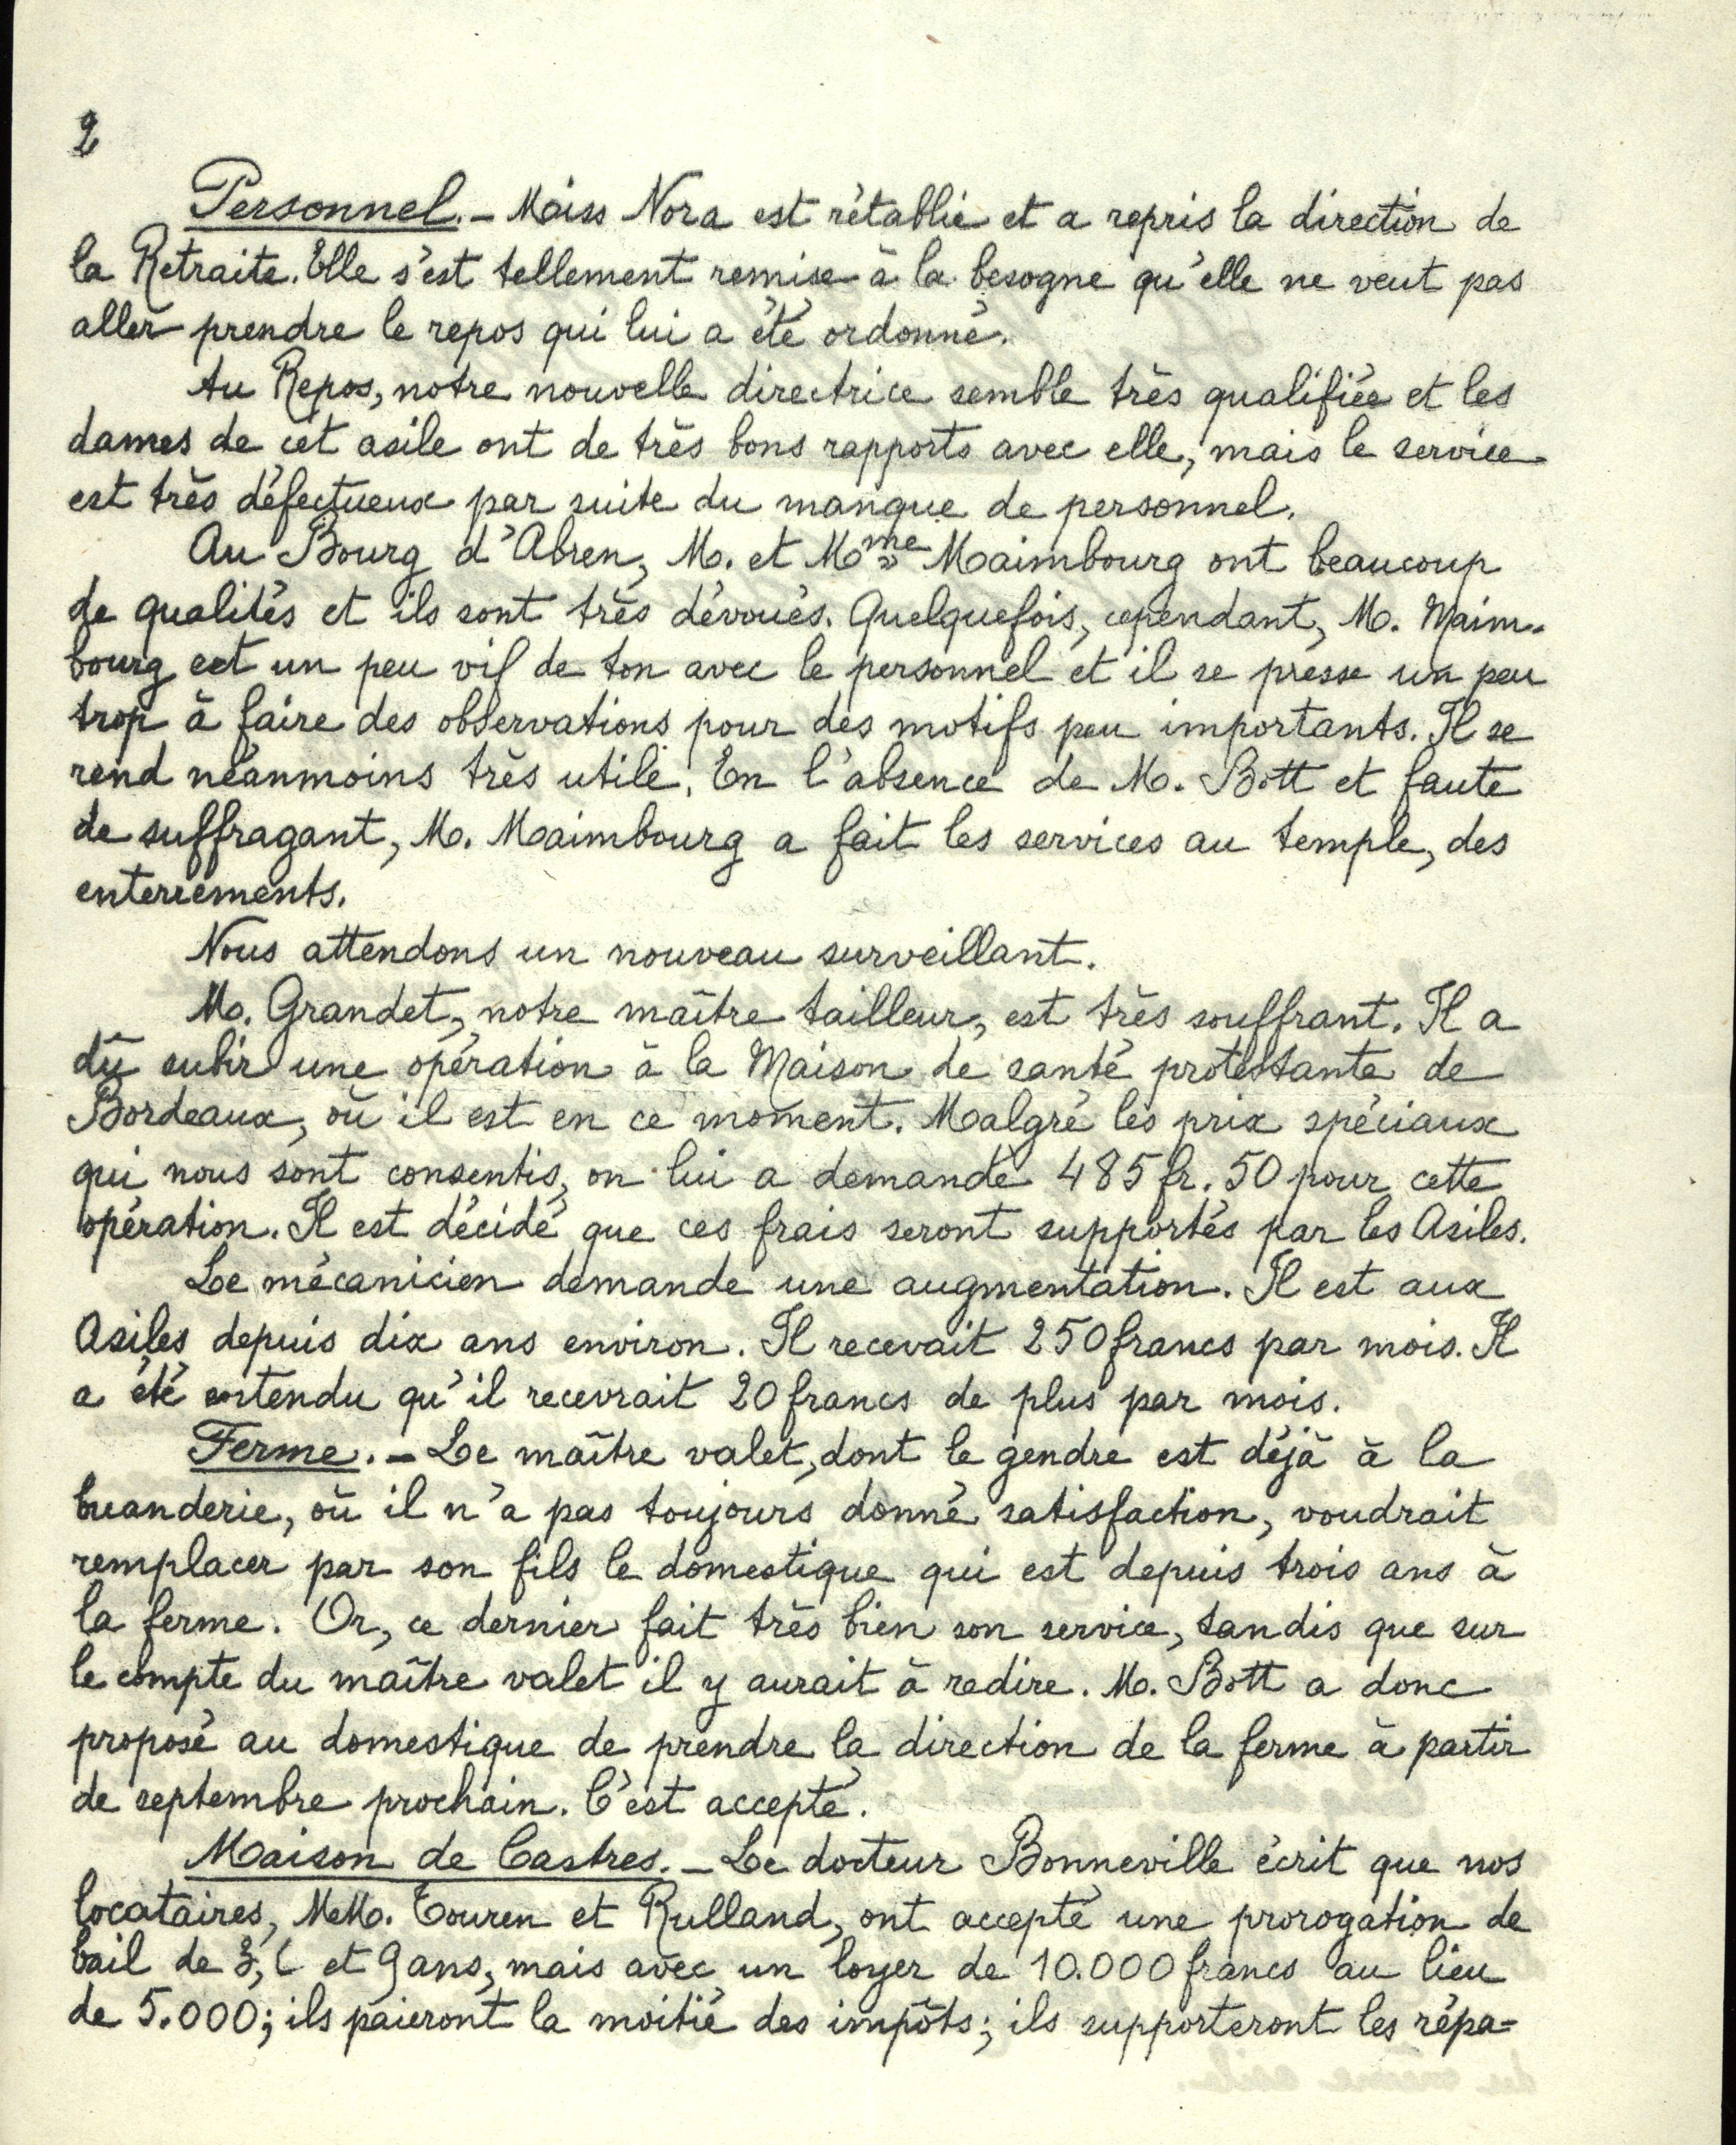 2
Personnel. - Miss Nora est rétablie et a repris la direction de
la Retraite. Elle s'est tellement remise à la besogne qu'elle ne veut pas
aller prendre le repos qui lui a été ordonné.
Au Repos, notre nouvelle directrice semble très qualifiée et les
dames de cet asile ont de très bons rapports avec elle, mais le service
est très défectueux par suite du manque de personnel.
Au Bourg d'Abren, M. et Mme Maimbourg ont beaucoup
de qualités et ils sont très dévoués. Quelquefois, cependant, M. Maim-
bourg est un peu vif de ton avec le personnel et il se presse un peu
trop à faire des observations pour des motifs peu importants. Il se
rend néanmoins très utile. En l'absence de M. Bott et faute
de suffragant, M. Maimbourg a fait les services au temple, des
enterrements.
Nous attendons un nouveau surveillant.
M. Grandet, notre maître tailleur, est très souffrant. Il a
dû subir une opération à la Maison de santé protestante de
Bordeaux, où il est en ce moment. Malgré les prix spéciaux
qui nous sont consentis, on lui a demandé 485 fr. 50 pour cette
opération. Il est décidé que ces frais seront supportés par les Asiles.
Le mécanicien demande une augmentation. Il est aux
Asiles depuis dix ans environ. Il recevait 250 francs par mois. Il
a été entendu qu'il recevrait 20 francs de plus par mois.
Ferme. - Le maître valet, dont le gendre est déjà à la
buanderie, où il n'a pas toujours donné satisfaction, voudrait
remplacer par son fils le domestique qui est depuis trois ans à
la ferme. Or, ce dernier fait très bien son service, tandis que sur
le compte du maître valet il y aurait à redire. M. Bott a donc
proposé au domestique de prendre la direction de la ferme à partir
de septembre prochain. C'est accepté.
Maison de Castres. - Le docteur Bonneville écrit que nos
locataires, MM. Touren et Rulland, ont accepté une prorogation de
bail de 3, 6 et 9 ans, mais avec un loyer de 10.000 francs au lieu
de 5.000; ils paieront la moitié des impôts; ils supporteront les répa-